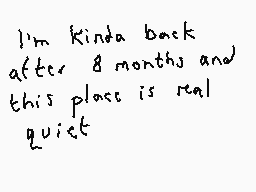 I'm kinda back
after 8 months and
this place is real
quiet